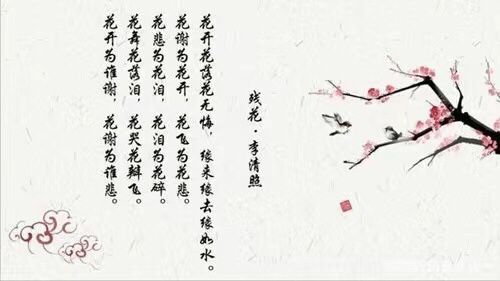 残花·李清照
花开花落花无悔，缘来缘去缘如水。
花谢为花开，花飞为花悲。
花悲为花泪，花泪为花碎。
花舞花落泪，花哭花瓣飞。
花开为谁谢，花谢为谁悲。